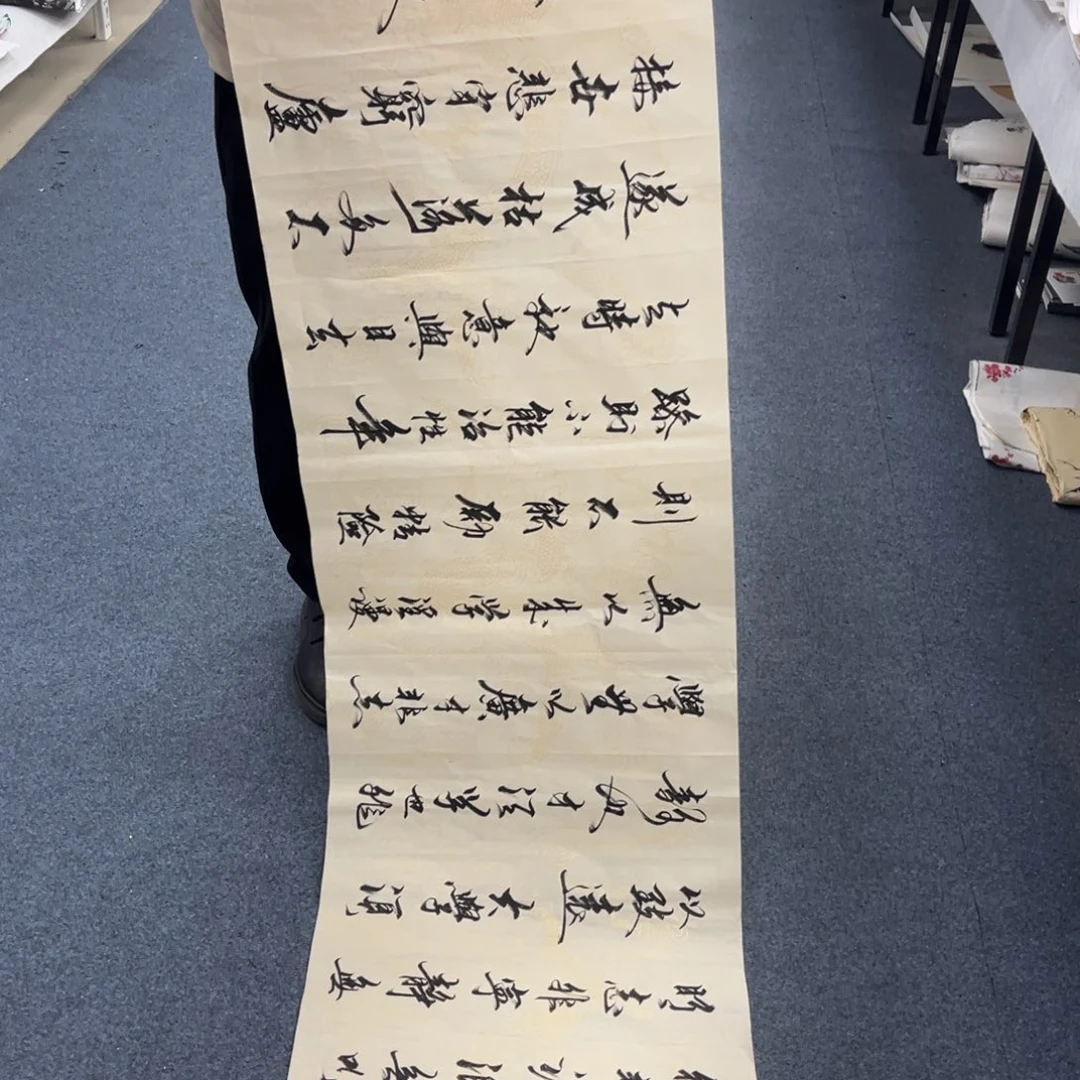 明志非寧靜無
以致遠夫學須
靜也才須學也非
學無以廣才非志
無以成學淫慢
則不能勵精險
躁則不能治性年
与時馳意與日去
遂成枯落多不
接世悲守窮廬